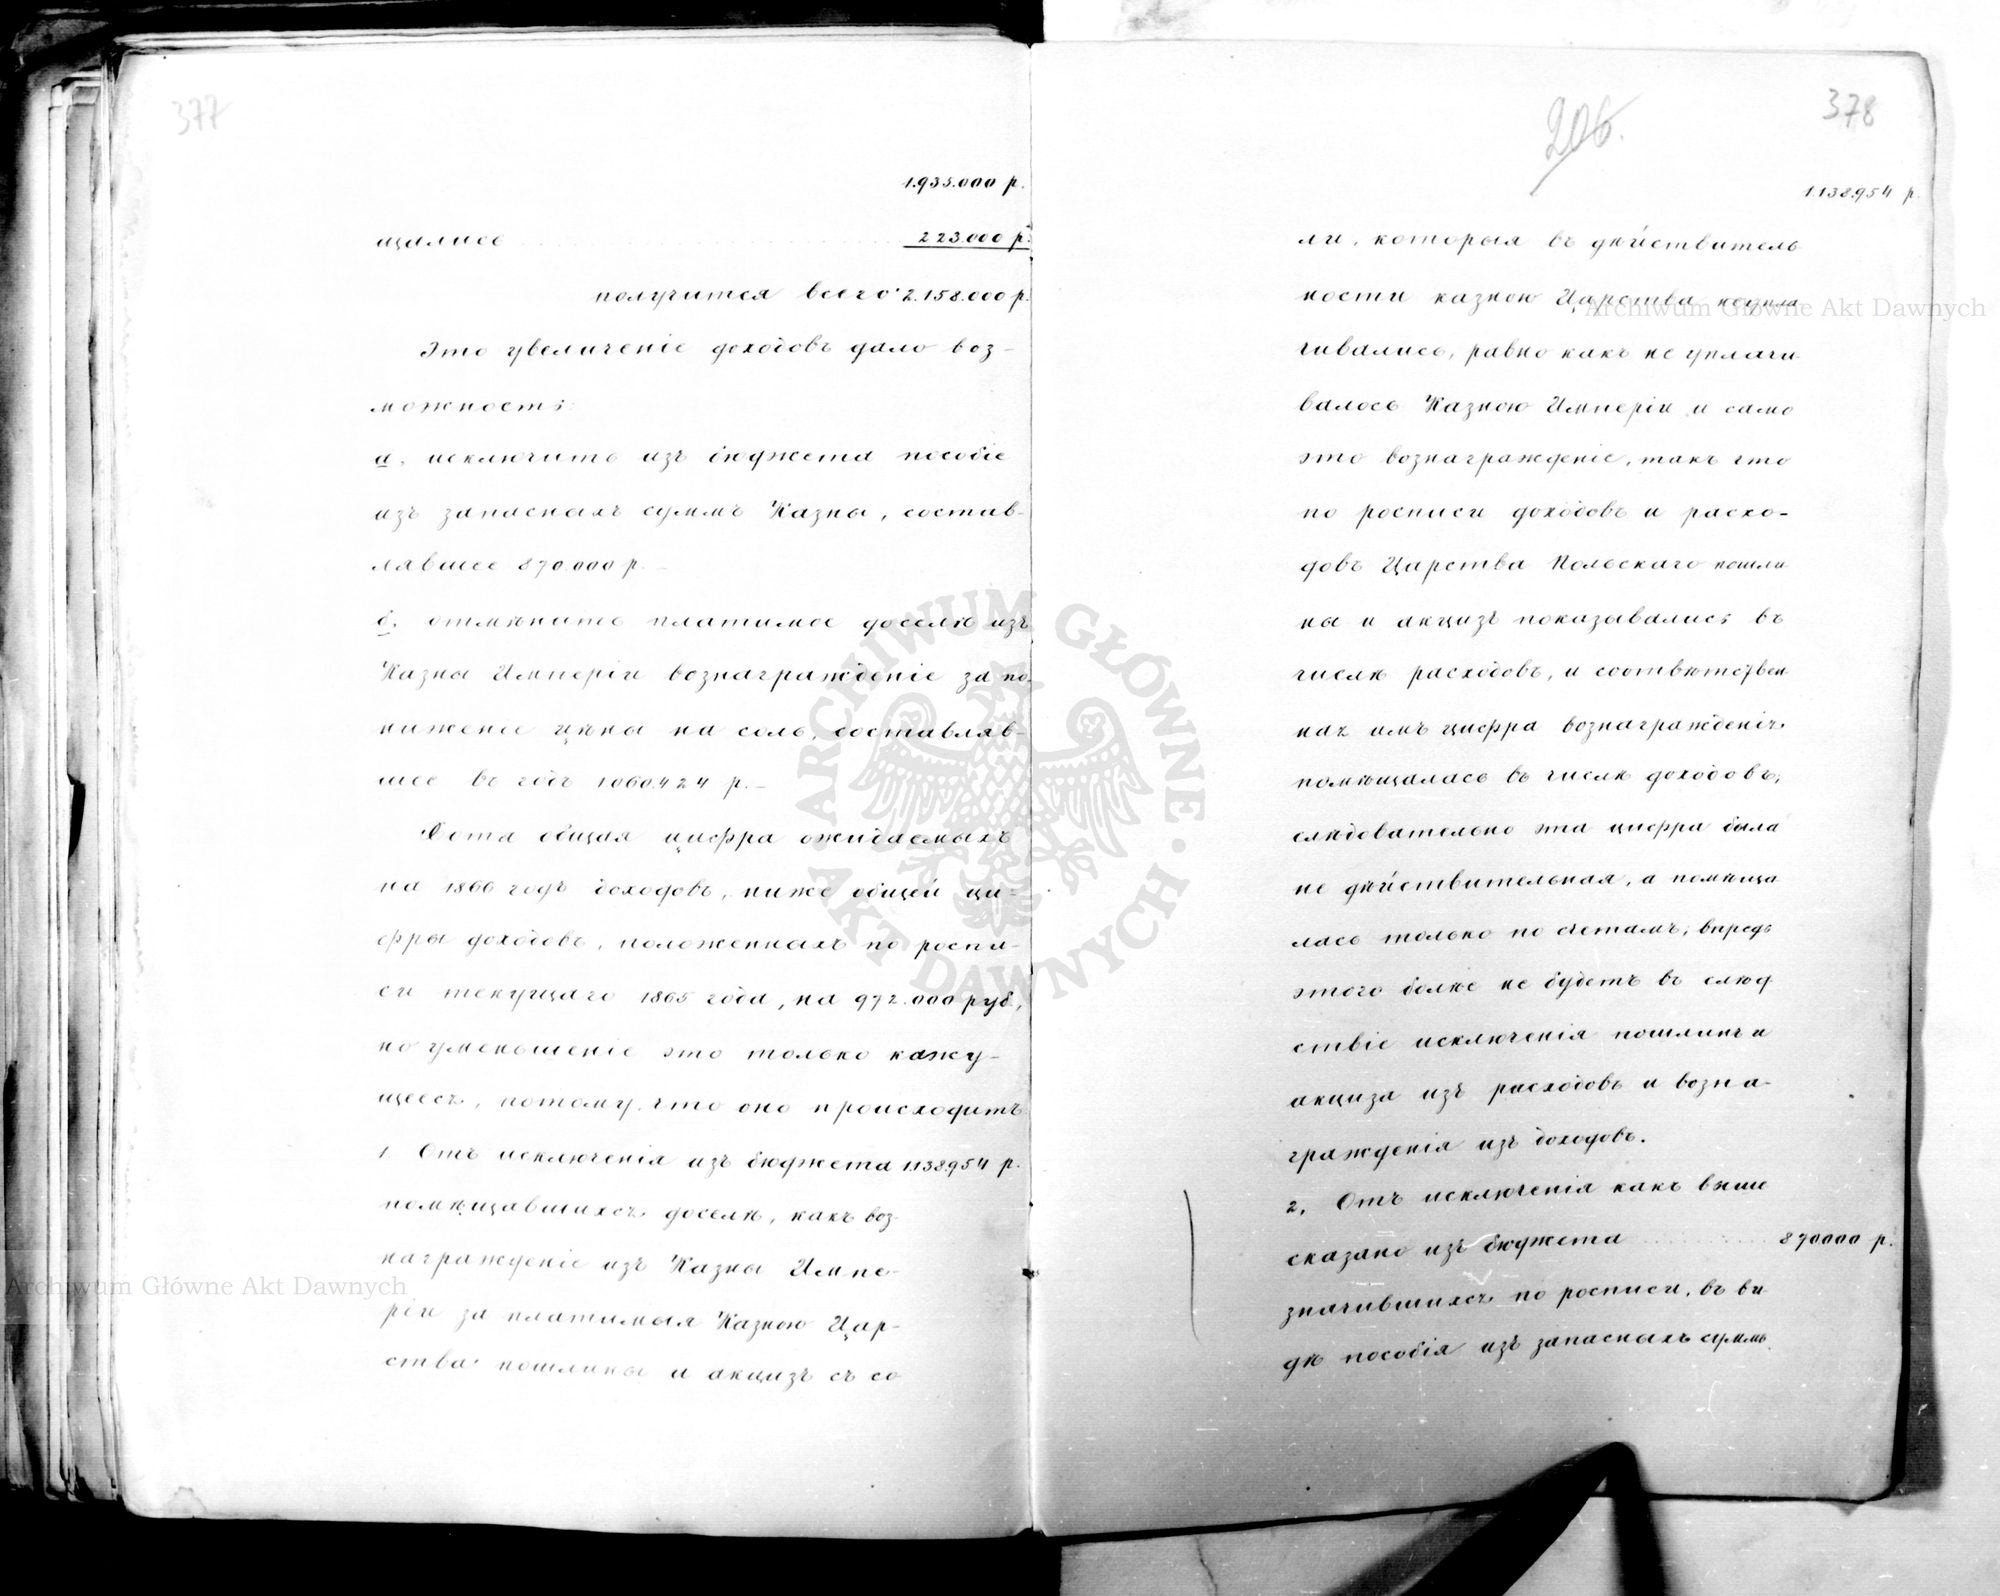 377
1.935.000 р.
щались 223.000 р.
получится всего 2.158.000 р.
Это увеличеніе доходовъ дало воз-
можность:
а, исключить изъ бюджета пособіе
изъ запасныхъ суммъ Казны, состав-
лявшее 870.000 р.
б, отмѣнить платимое доселѣ изъ
Казны Имперіи вознагражденіе за по-
ниженіе цѣны на соль, составляв-
шее въ годъ 1060.424 р.
Хотя общая цифра ожидаемыхъ
на 1866 годъ доходовъ, ниже общей ци-
фры доходовъ, положенныхъ по роспи-
си текущаго 1865 года, на 972.000 руб.,
но уменьшеніе это только кажу-
щееся, потому что оно происходитъ
1 Отъ исключенія изъ бюджета 1.138.954 р.
помѣщавшихся доселѣ, какъ воз-
награжденіе изъ Казны Импе-
ріи за платимыя Казною Цар-
ства пошлины и акцизъ съ со
378
206.
1.138.954 р.
ли, которыя въ дѣйствитель
ности казною Царства неупла
чивались, равно какъ не уплачи
валось Казною Имперіи и само
это вознагражденіе, такъ что
по росписи доходовъ и расхо-
довъ Царства Польскаго пошли
ны и акцизъ показывались въ
числѣ расходовъ, и соотвѣтствен
ная имъ цифра вознагражденія
помѣщалась въ числѣ доходовъ;
слѣдовательно эта цифра была
не дѣйствительная, а помѣща
лась только по счетамъ; впредь
этого болѣе не будетъ въ слѣд
ствіе исключенія пошлинъ и
акциза изъ расходовъ и возна-
гражденія изъ доходовъ.
2, Отъ исключенія какъ выше
сказано изъ бюджета 870000 р.
значившихся по росписи, въ ви
дѣ пособія изъ запасныхъ суммъ
Archiwum Główne Akt Dawnych
Archiwum Główne Akt Dawnych
ARCHIWUM GŁÓWNE AKT DAWNYCH